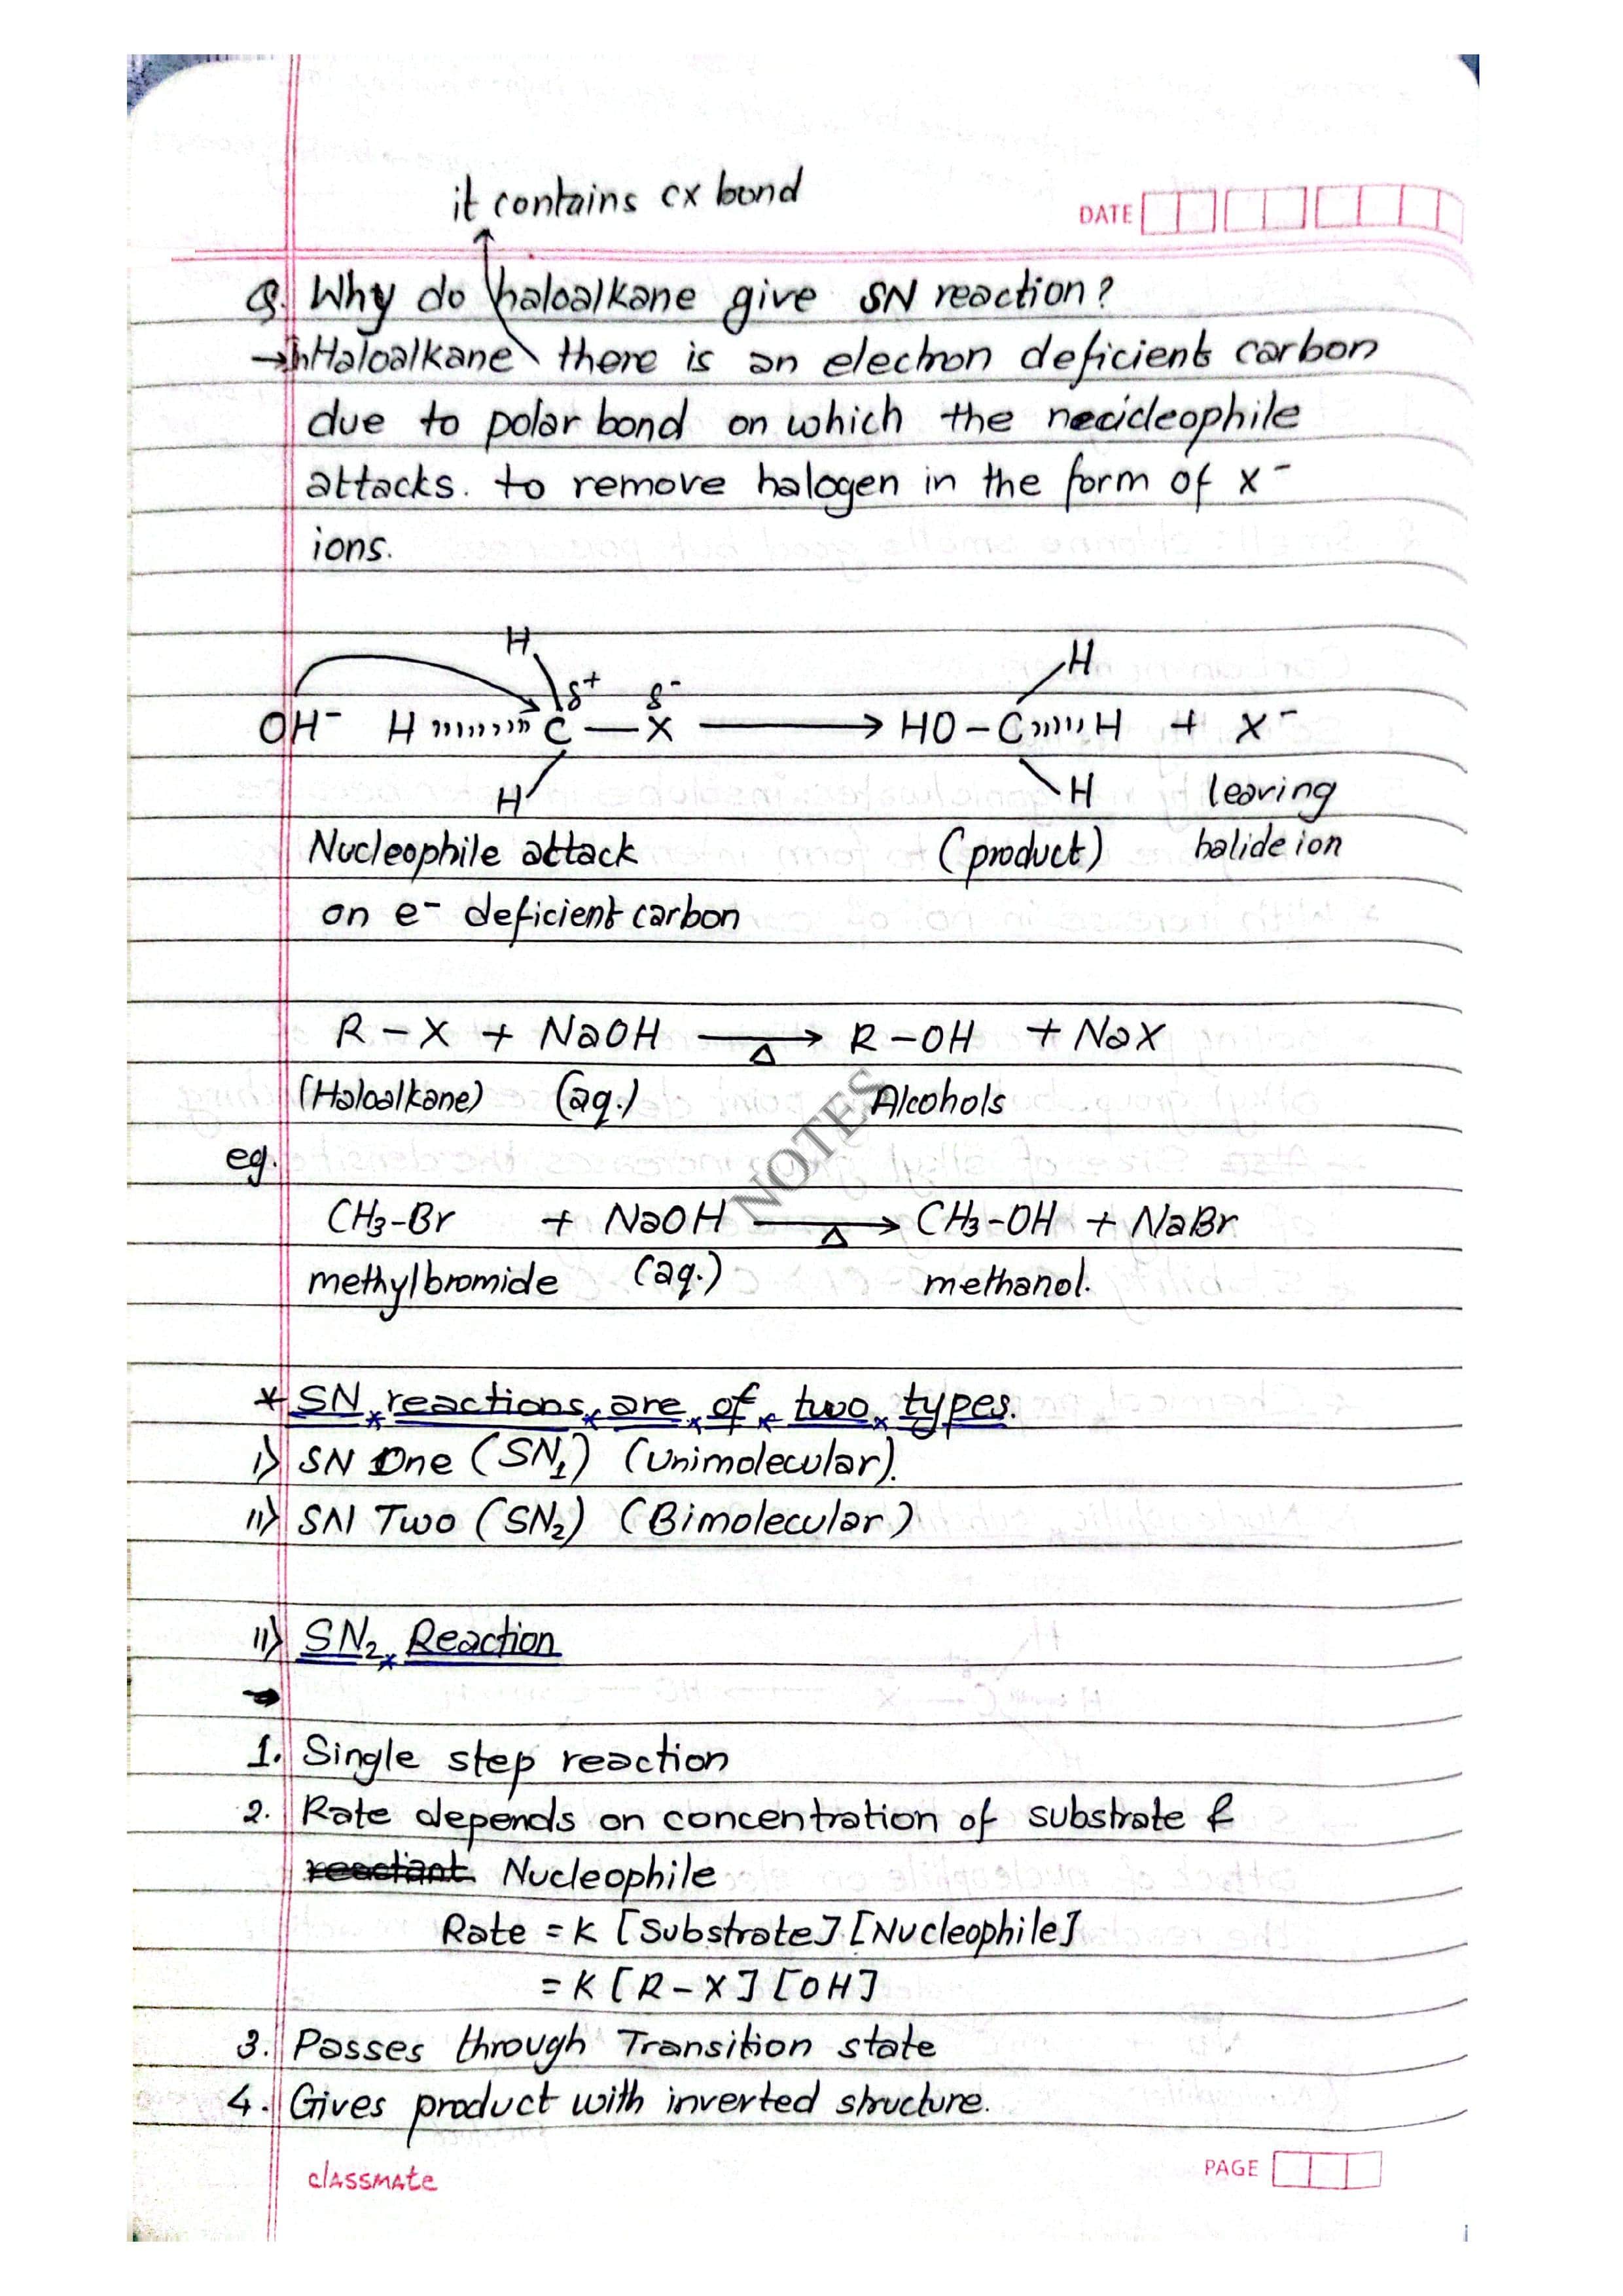 it contains cx bond
DATE
Q. Why do haloalkane give SN reaction?
→ In Haloalkane there is an electron deficient carbon
due to polar bond on which the necideophile
attacks. to remove halogen in the form of X⁻
ions.
H H
δ⁺ δ⁻
OH⁻ H C — X ⟶ HO – C H + X⁻
H H leaving
Nucleophile attack (product) halide ion
on e⁻ deficient carbon
R – X + NaOH ⟶ R – OH + NaX
Δ
(Haloalkane) (aq.) Alcohols
NOTES
eg.
CH₃-Br + NaOH ⟶ CH₃-OH + NaBr
Δ
methylbromide (aq.) methanol.
* SN reactions are of two types.
i) SN One (SN₁) (Unimolecular).
ii) SN Two (SN₂) (Bimolecular)
ii) SN₂ Reaction
→
1. Single step reaction
2. Rate depends on concentration of substrate &
reactant Nucleophile
Rate = K [Substrate] [Nucleophile]
= K [R – X] [OH]
3. Passes through Transition state
4. Gives product with inverted structure.
classmate
PAGE